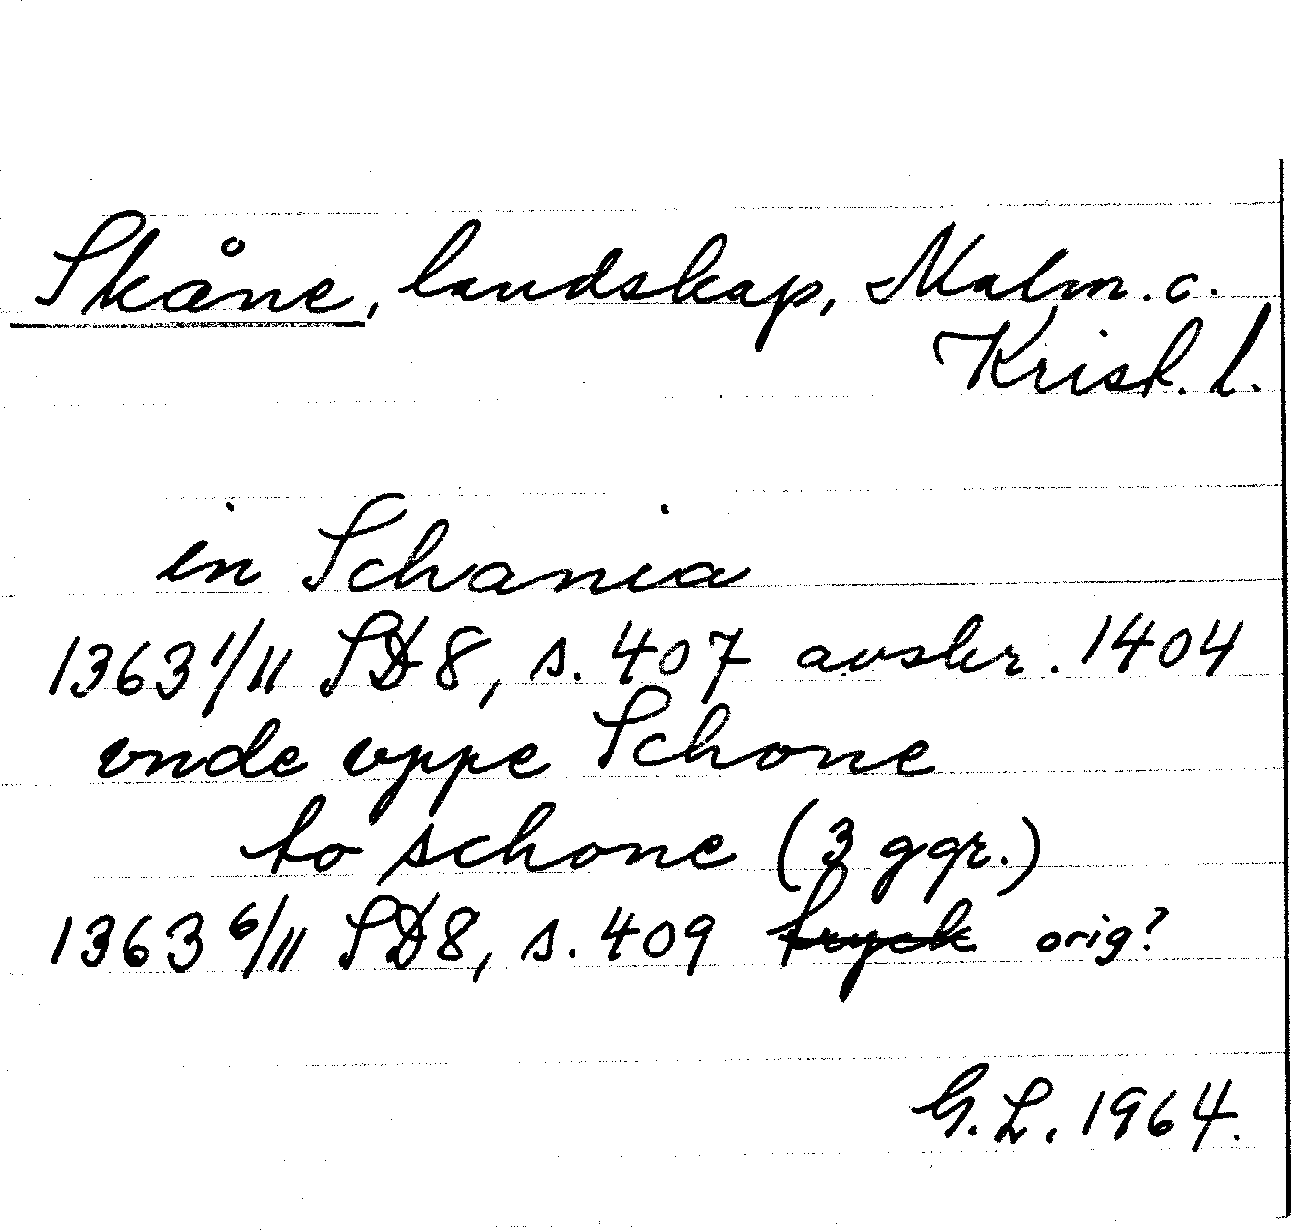 Skåne, landskap, Malm. o.
Krist. l.
in Schania
1363 1/11 SD 8, s. 407 avskr. 1404
vnde vppe Schone
to schone (3 ggr.)
1363 6/11 SD 8, s. 409 tryck orig?
G. L. 1964.